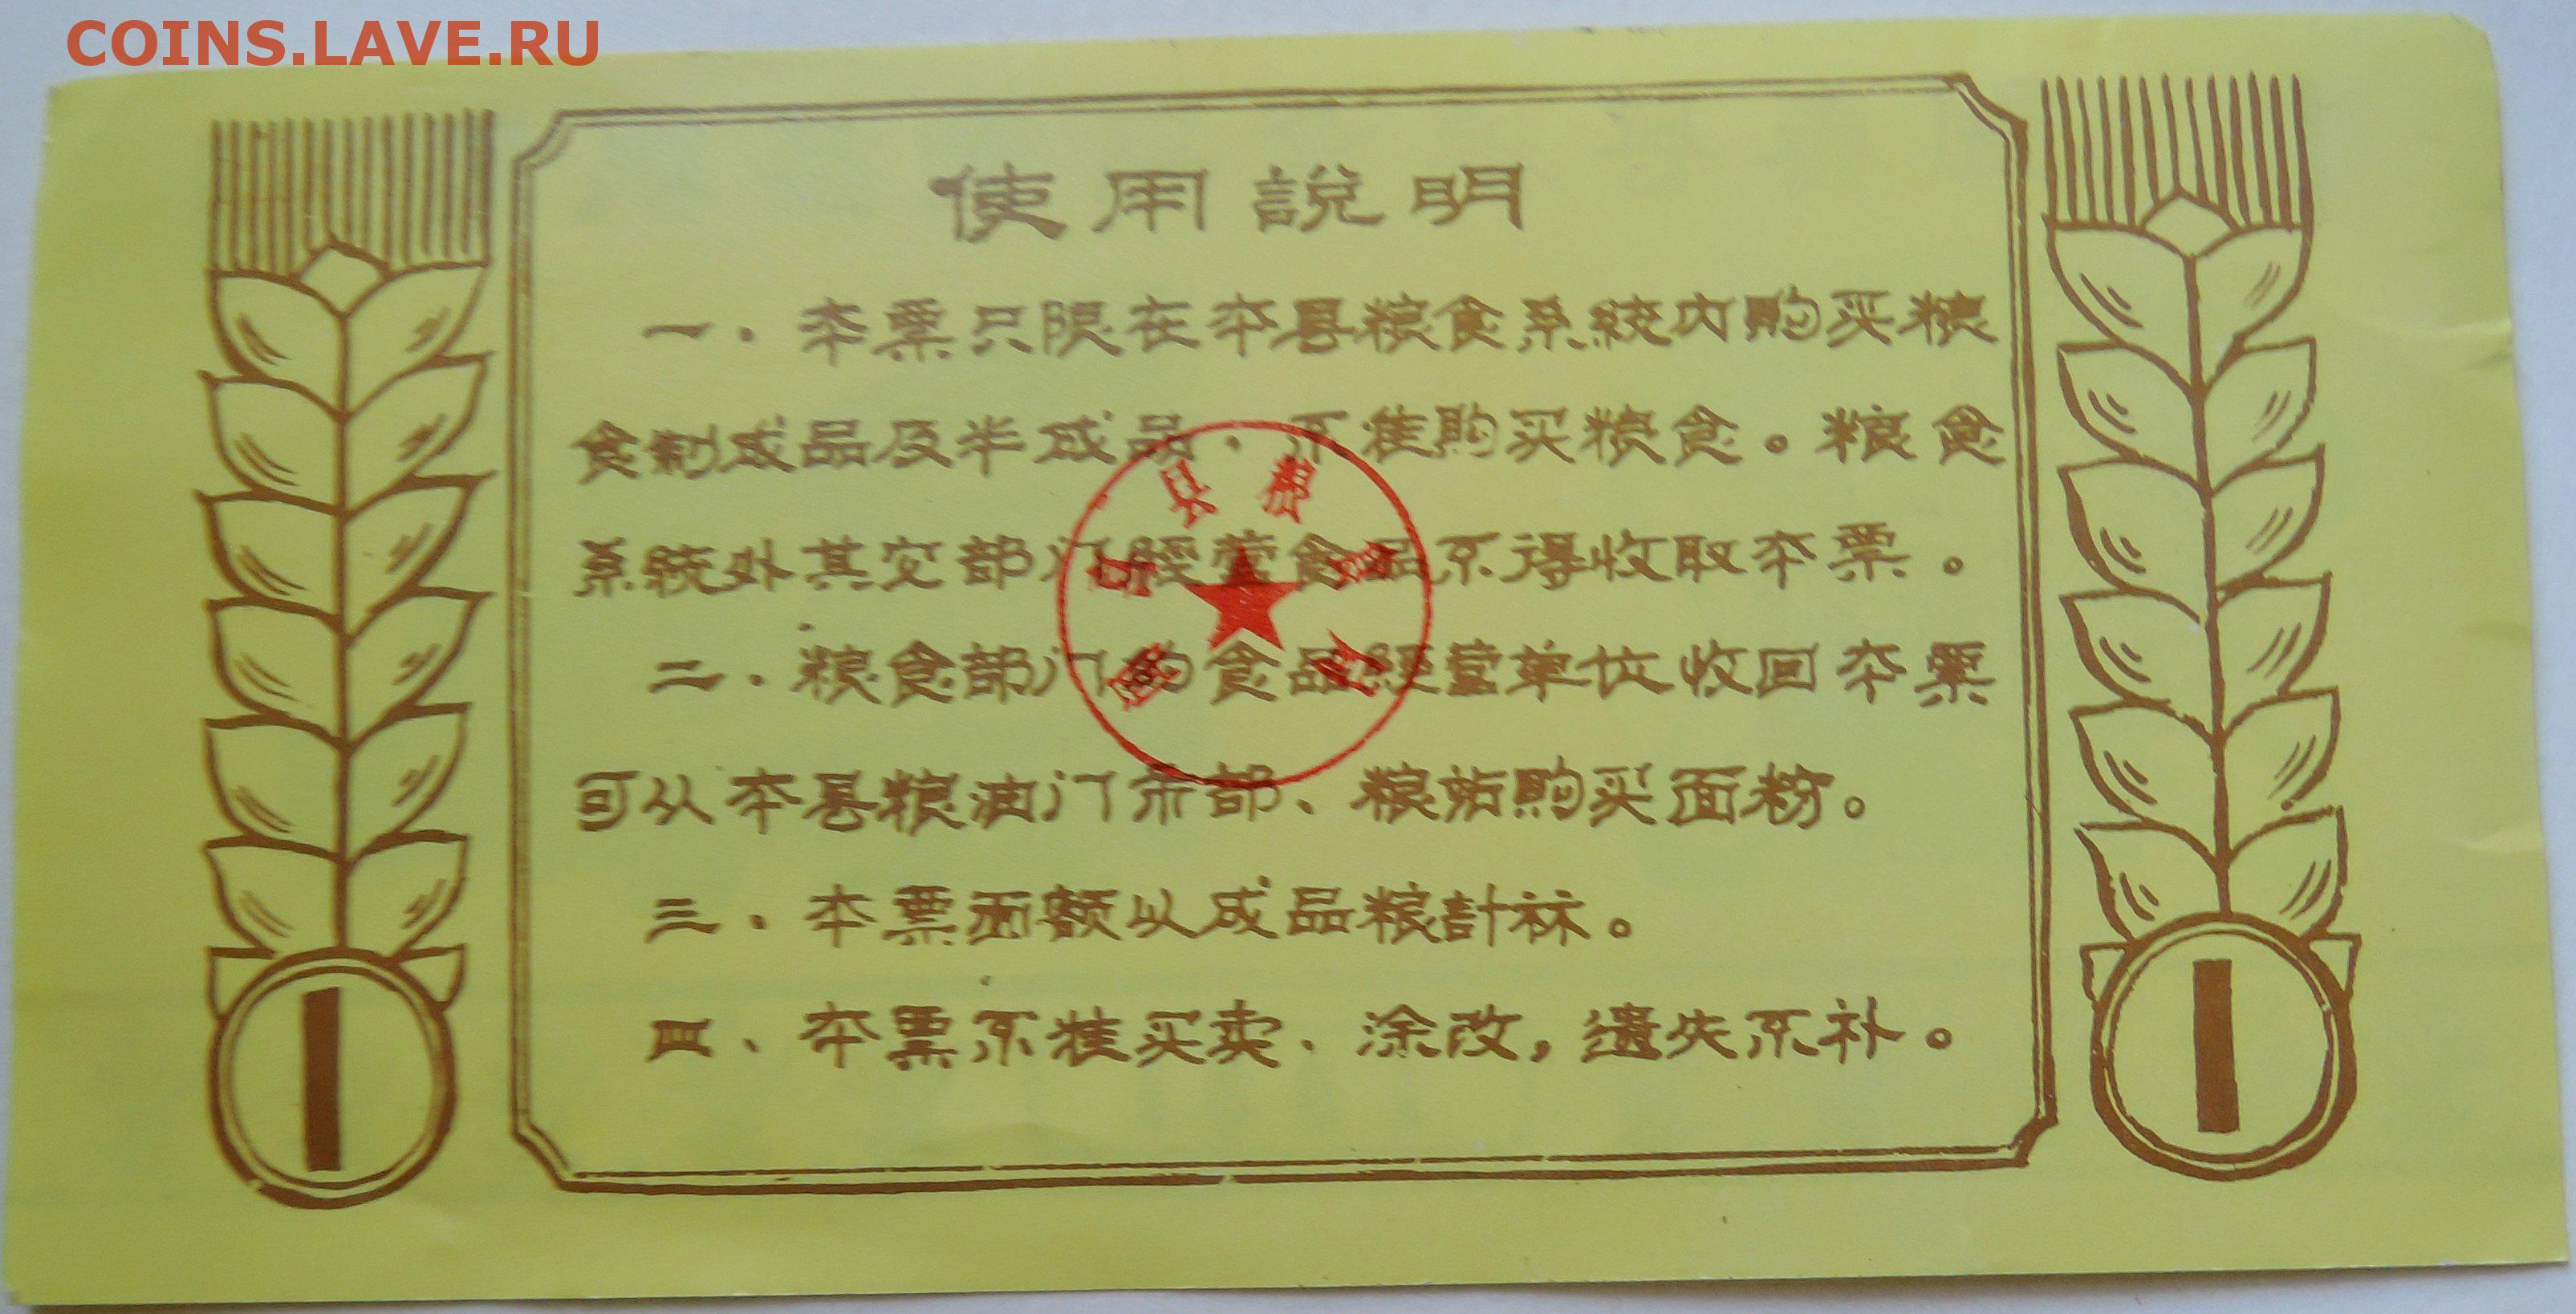 COINS.LAVE.RU
使用說明
一．本票只限在本县粮食系統内購买粮
食制成品及半成品．不准購买粮食。粮食
系統外其它部门經营食品不得收取本票。
二．粮食部门的食品經营单位收回本票
可从本县粮油门市部、粮站購买面粉。
三．本票面额以成品粮計祘。
四、本票不准买卖．涂改，遗失不补。
县
1
1